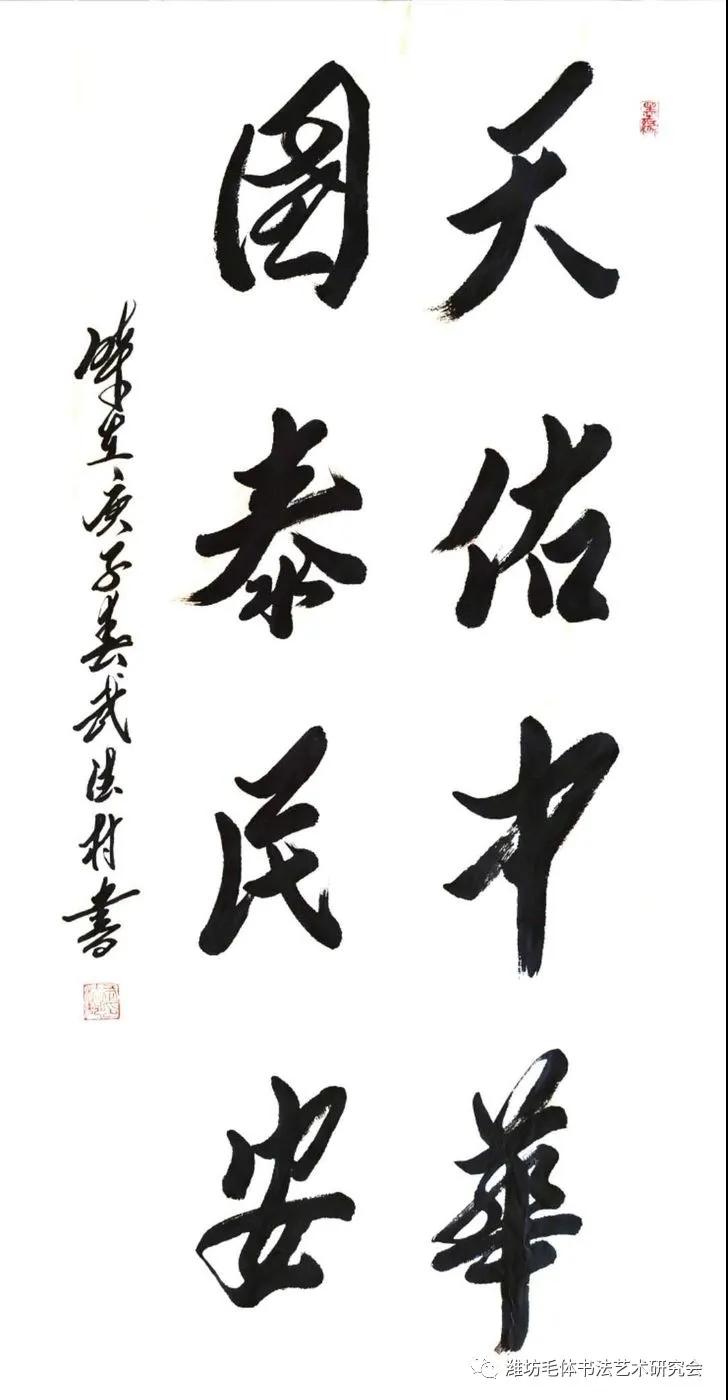 天佑中華
國泰民安
歲在庚子春武法村書
潍坊毛体书法艺术研究会